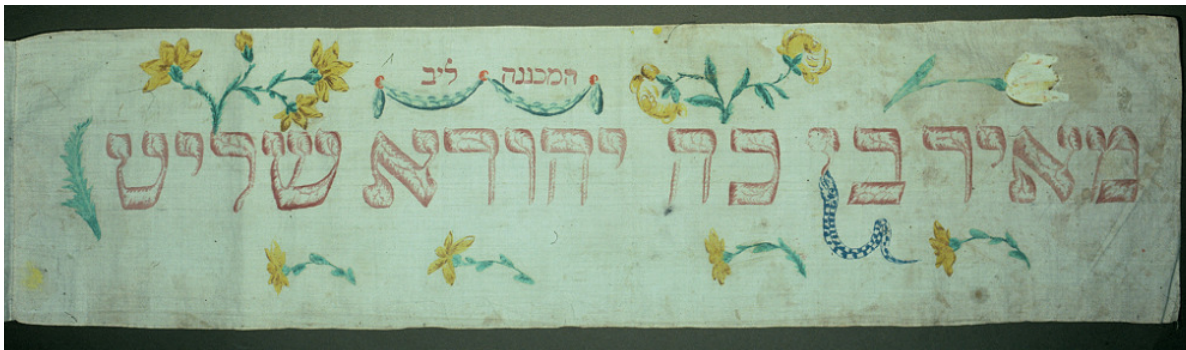 המכונה ליב
מאיר בן כה יהודא שליט